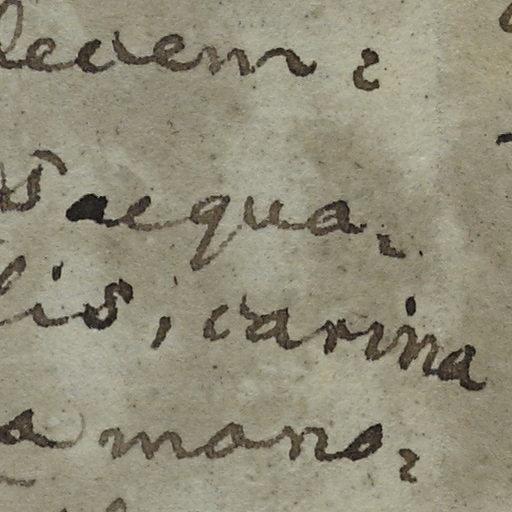 decem:
s aequa.
lis, carina
a mono: